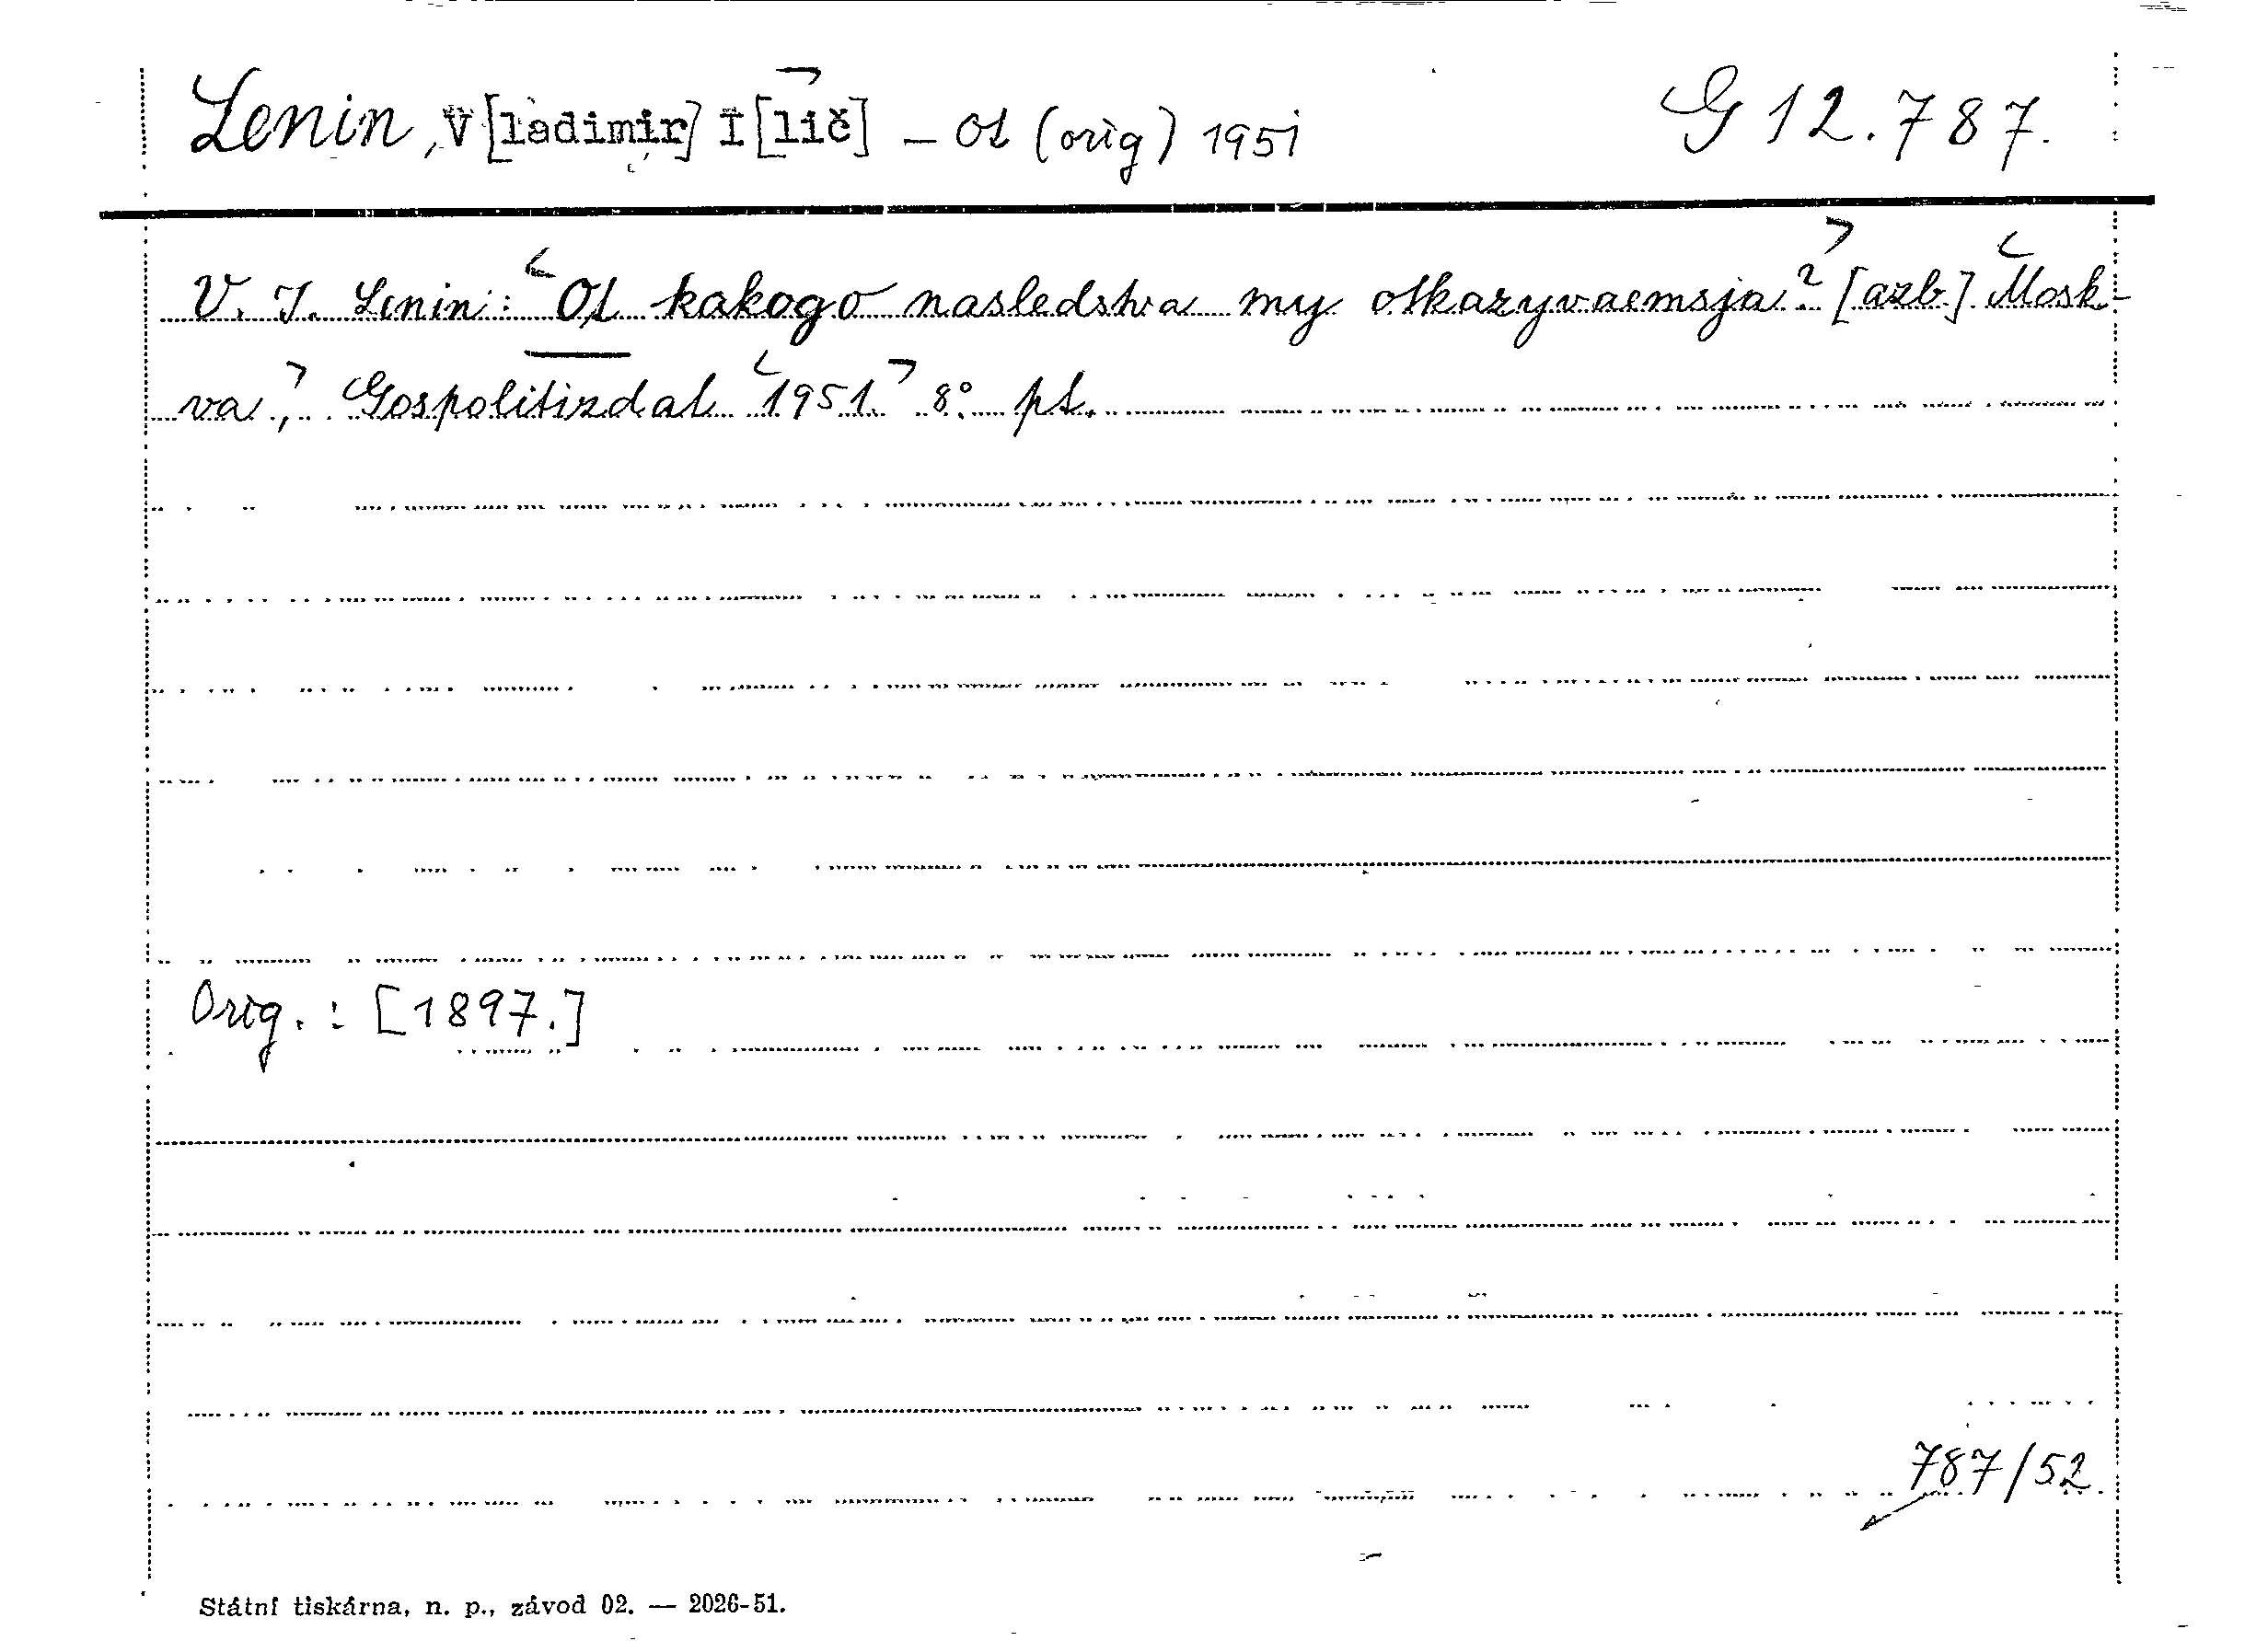 Lenin, V[ladimir] I[lič] – Ot (orig) 1951 G 12.787.
V. I. Lenin: Ot kakogo nasledstva my otkazyvaemsja? [azb.] Mosk-
va, Gospolitizdat 1951 8° pt.
Orig.: [1897.]
787/52
Státní tiskárna, n. p., závod 02. — 2026-51.